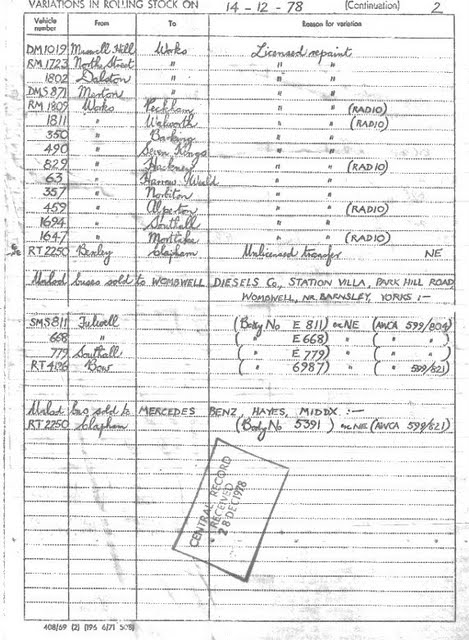 VARIATIONS IN ROLLING STOCK ON 14-12-78 (Continuation) 2
Vehicle number From To Reason for variation
DM1019 Muswell Hill Works Licensed repaint
RM1723 North Street " " "
1802 Dalston " " "
DMS871 Merton " " "
RM1809 Works Peckham " " (RADIO)
1811 " Walworth " " (RADIO)
350 " Barking " "
490 " Seven Kings " "
829 " Hackney " " (RADIO)
63 " Harrow Weald " "
357 " Norbiton " "
459 " Alperton " " (RADIO)
1694 " Southall " "
1647 " Mortlake " " (RADIO)
RT2250 Bexley Clapham Unlicensed transfer NE
buses sold to WOMBWELL DIESELS Co., STATION VILLA, PARK HILL ROAD
WOMBWELL, NR. BARNSLEY, YORKS :-
SMS811 Fulwell (Body No E 811) NE (AWCA 599/804)
668 " ( " E668) " ( " " )
779 Southall ( " E779) " ( " " )
RT4136 Bow ( " 6987) " ( " 599/821)
bus sold to MERCEDES BENZ, HAYES, MIDDX. :-
RT2250 Clapham (Body No 5391) NE (AWCA 599/821)
CENTRAL RECORD
RECEIVED
28 DEC 1978
408/69 (2) (195 6/71